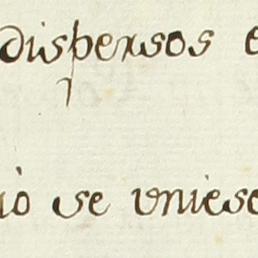 dispersos e
iò se vniese